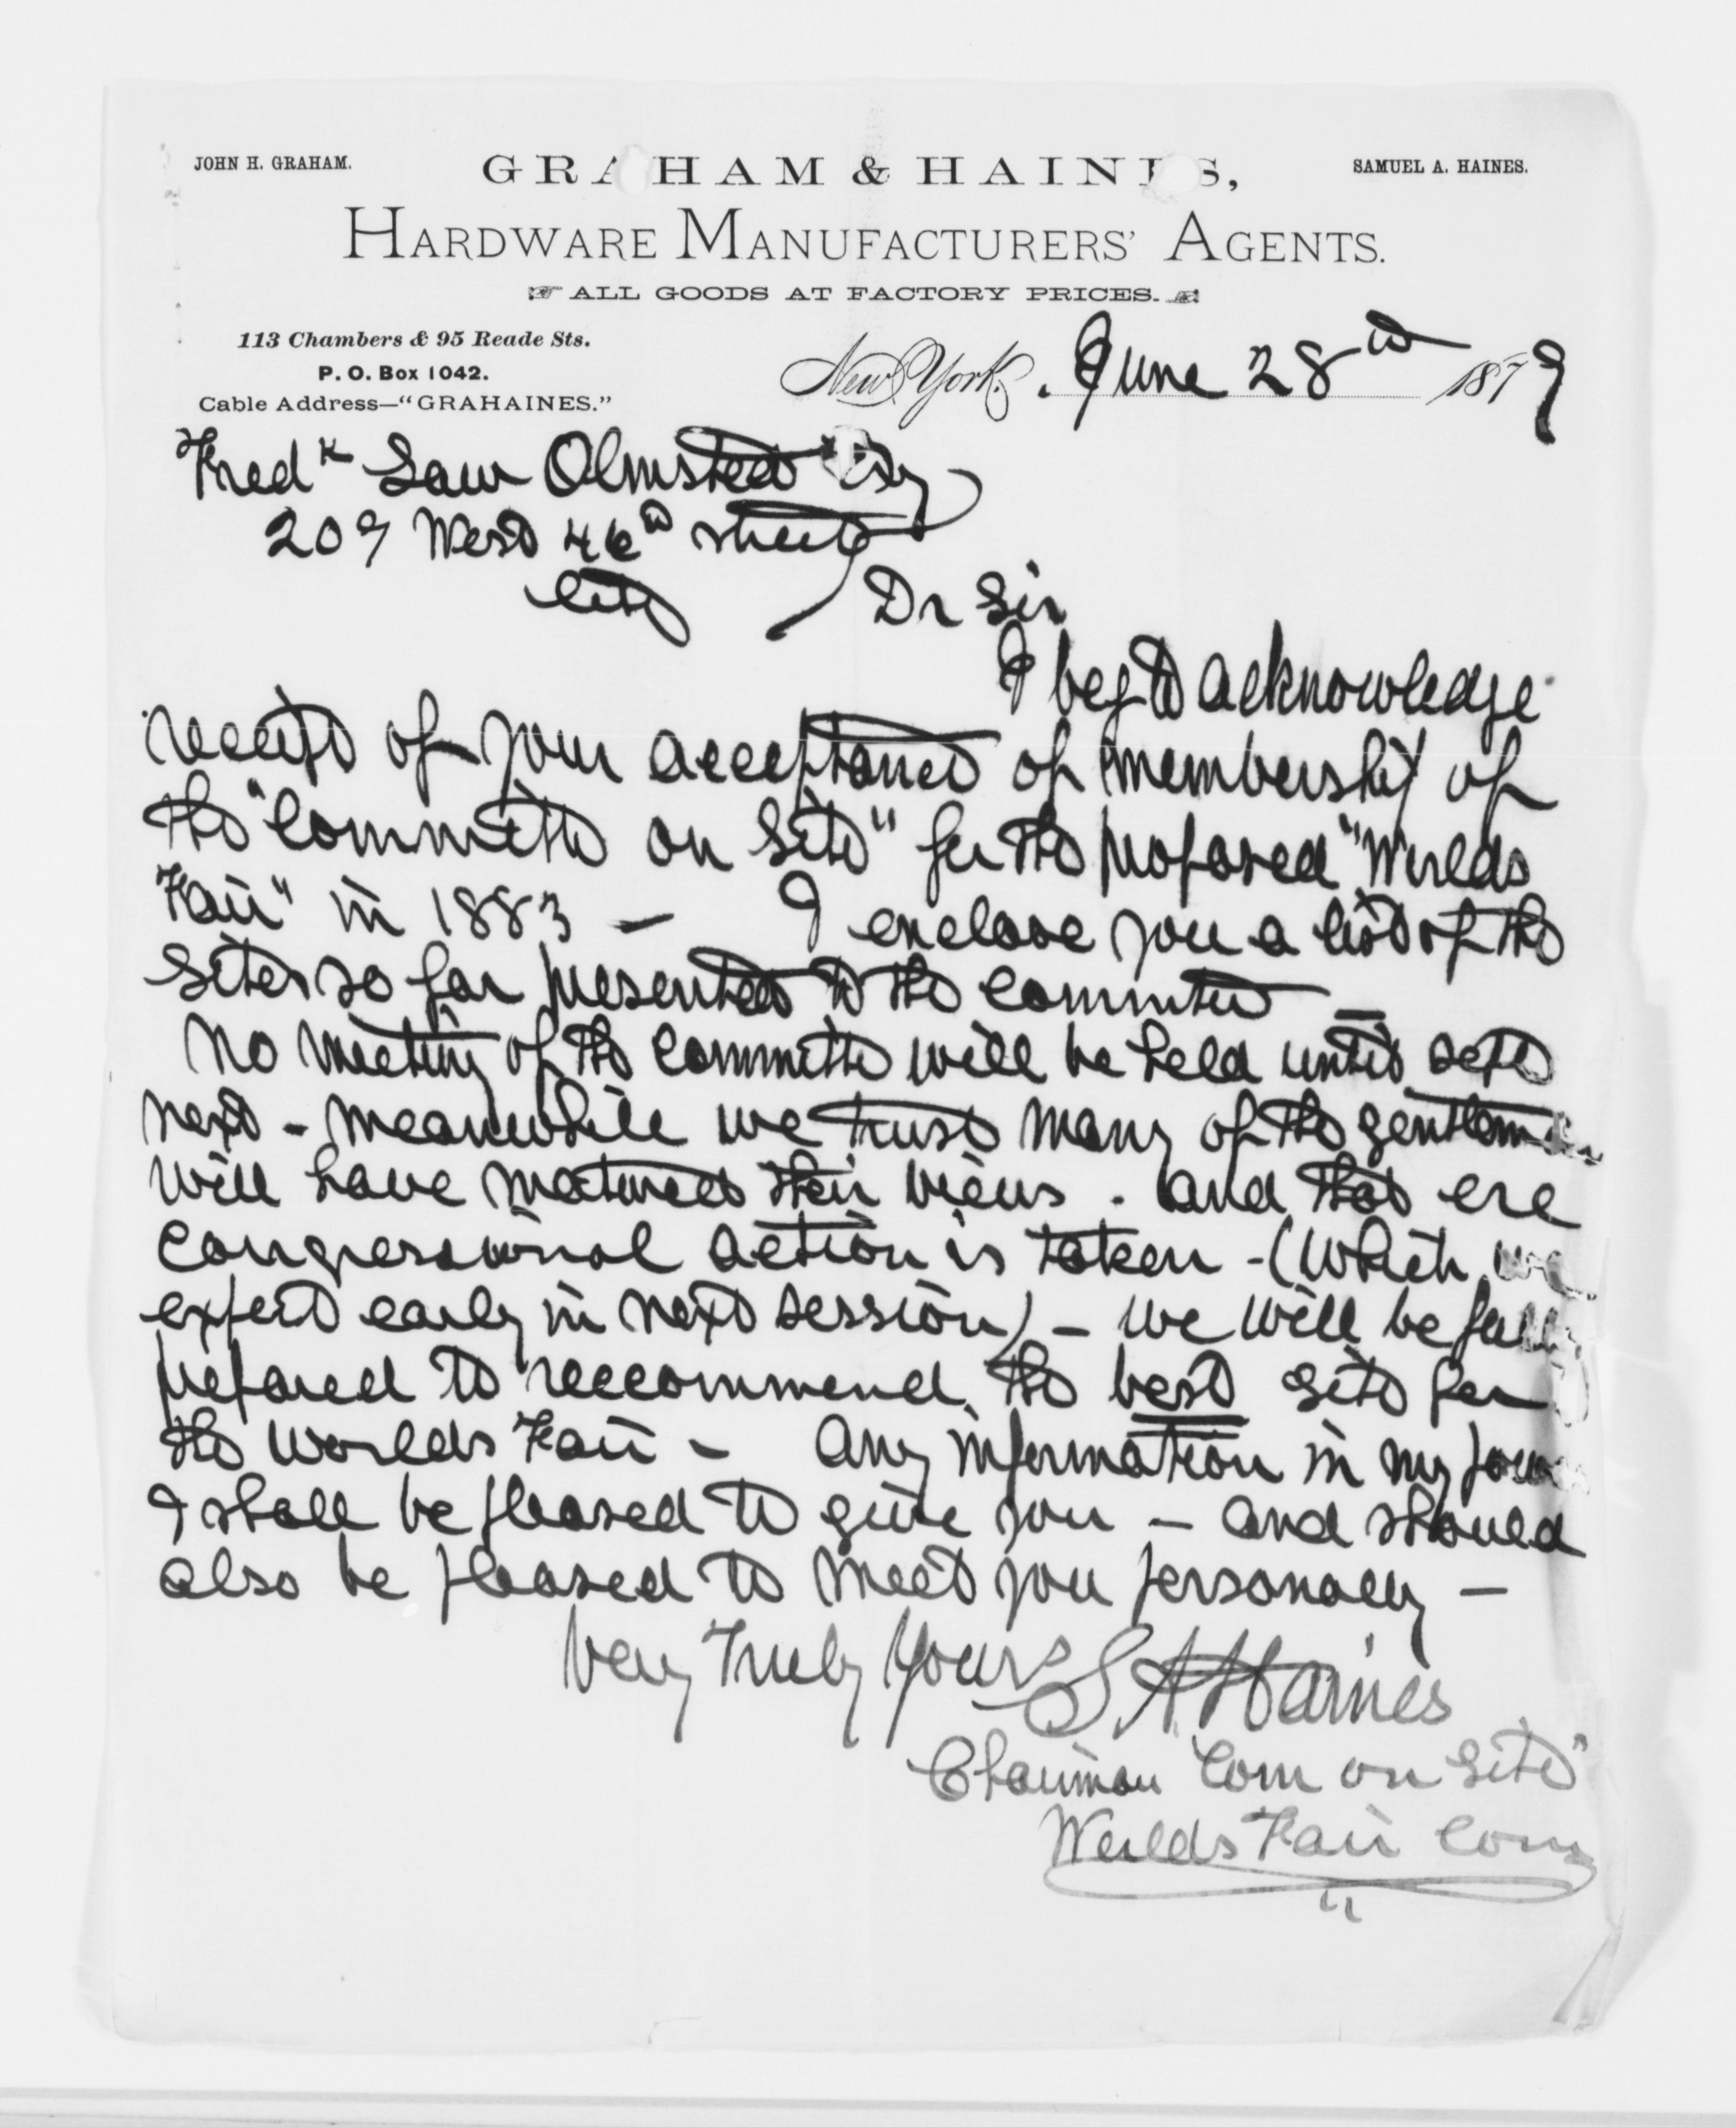 JOHN H. GRAHAM.
GRAHAM & HAINES,
SAMUEL A. HAINES.
HARDWARE MANUFACTURERS' AGENTS.
ALL GOODS AT FACTORY PRICES.
113 Chambers & 95 Reade Sts.
P. O. Box 1042.
Cable Address—"GRAHAINES."
New York, June 28th 1879
Fredk Law Olmsted Esq
209 West 46th street
City
Dr Sir
I beg to acknowledge
receipt of your acceptance of membership of
the "Committee on Site" for the proposed "Worlds
Fair" in 1883 — I enclose you a list of the
sites so far presented to the committee —
No meeting of the Committee will be held until Sept
next - meanwhile we trust many of the gentlemen
will have matured their views . and that ere
Congressional action is taken - (which we
expect early in next session) — we will be fully
prepared to reccommend the best site for
the Worlds Fair - Any information in my power
I shall be pleased to give you — and should
also be pleased to meet you personally —
Very Truly Yours S. A. Haines
Chairman "Com on Site"
Worlds Fair Com